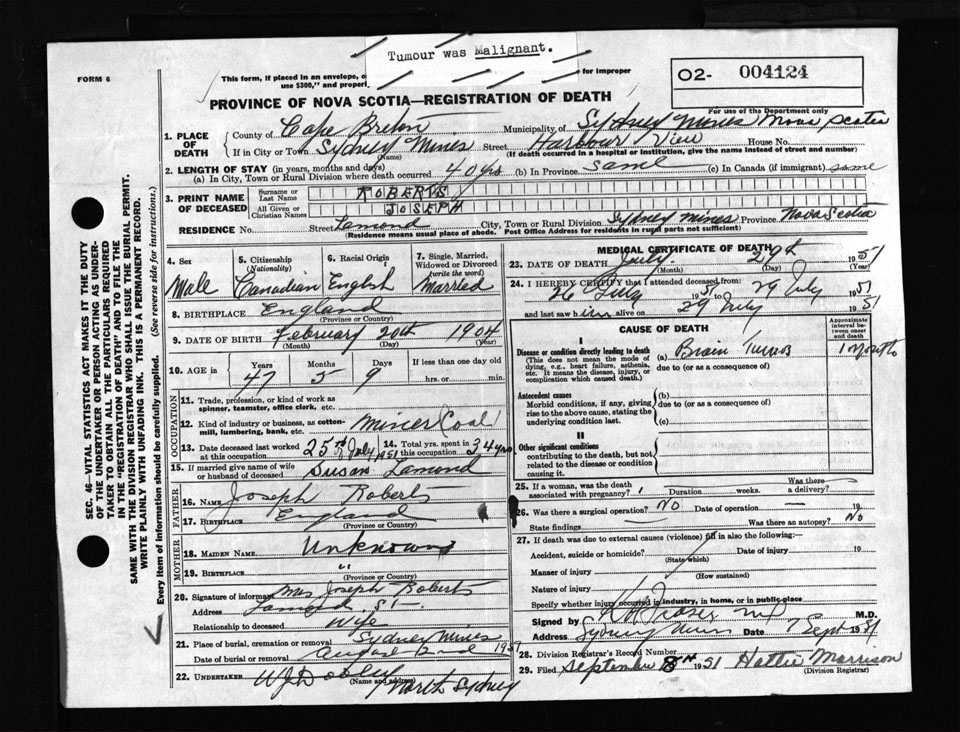 Tumour was Malignant.
FORM 6
This form, if placed in an envelope,
for improper
use $300," and
O2- 004124
PROVINCE OF NOVA SCOTIA—REGISTRATION OF DEATH
For use of the Department only
1. PLACE OF DEATH
County of Cape Breton Municipality of Sydney Mines Nova Scotia
If in City or Town Sydney Mines Street Harbour View House No.
(Name) (If death occurred in a hospital or institution, give the name instead of street and number)
2. LENGTH OF STAY (in years, months and days)
(a) In City, Town or Rural Division where death occurred 40 yrs (b) In Province Same (c) In Canada (if immigrant) same
3. PRINT NAME OF DECEASED
Surname or Last Name ROBERTS
All Given or Christian Names JOSEPH
RESIDENCE No. Street Lamond City, Town or Rural Division Sydney Mines Province Nova Scotia
(Residence means usual place of abode. Post Office Address for residents in rural parts not sufficient)
4. Sex Male
5. Citizenship (Nationality) Canadian
6. Racial Origin English
7. Single, Married, Widowed or Divorced (write the word) Married
8. BIRTHPLACE England
(Province or Country)
9. DATE OF BIRTH February 20th 1904
(Month) (Day) (Year)
10. AGE in Years 47 Months 5 Days 9 If less than one day old hrs. or min.
OCCUPATION
11. Trade, profession, or kind of work as spinner, teamster, office clerk, etc.
12. Kind of industry or business, as cotton-mill, lumbering, bank, etc. Miner Coal
13. Date deceased last worked at this occupation 25th July 1951
14. Total yrs. spent in this occupation 34 yrs
15. If married give name of wife or husband of deceased Susan Lamond
FATHER
16. NAME Joseph Roberts
17. BIRTHPLACE England
(Province or Country)
MOTHER
18. MAIDEN NAME Unknown
19. BIRTHPLACE "
(Province or Country)
20. Signature of informant Mrs Joseph Roberts
Address Lamond St.
Relationship to deceased Wife
21. Place of burial, cremation or removal Sydney Mines
Date of burial or removal August 2nd 195
22. UNDERTAKER W J Dooley North Sydney
(Name and address)
MEDICAL CERTIFICATE OF DEATH
23. DATE OF DEATH July 29th 1951
(Month) (Day) (Year)
24. I HEREBY CERTIFY that I attended deceased from:
26 July 1951 to 29 July 1951
and last saw him alive on 29 July 1951
CAUSE OF DEATH
Approximate interval between onset and death
I
Disease or condition directly leading to death (a) Brain Tumor 1 Month
(This does not mean the mode of dying, e.g., heart failure, asthenia, etc. It means the disease, injury, or complication which caused death.)
due to (or as a consequence of)
Antecedent causes
Morbid conditions, if any, giving rise to the above cause, stating the underlying condition last.
(b)
due to (or as a consequence of)
(c)
II
Other significant conditions
contributing to the death, but not related to the disease or condition causing it.
25. If a woman, was the death associated with pregnancy? Duration weeks. Was there a delivery?
26. Was there a surgical operation? No Date of operation —
State findings — Was there an autopsy? No
27. If death was due to external causes (violence) fill in also the following:
Accident, suicide or homicide? Date of injury 19
(State which)
Manner of injury
(How sustained)
Nature of injury
Specify whether injury occurred in industry, in home, or in public place
Signed by Fraser MD M.D.
Address Sydney Mines Date 7 Sept 1951
28. Division Registrar's Record Number
29. Filed September 8th 1951 Hattie Morrison
(Division Registrar)
SEC. 46—VITAL STATISTICS ACT MAKES IT THE DUTY
OF THE UNDERTAKER OR PERSON ACTING AS UNDER-
TAKER TO OBTAIN ALL THE PARTICULARS REQUIRED
IN THE "REGISTRATION OF DEATH" AND TO FILE THE
SAME WITH THE DIVISION REGISTRAR WHO SHALL ISSUE THE BURIAL PERMIT.
WRITE PLAINLY WITH UNFADING INK. THIS IS A PERMANENT RECORD.
Every item of information should be carefully supplied. (See reverse side for instructions.)